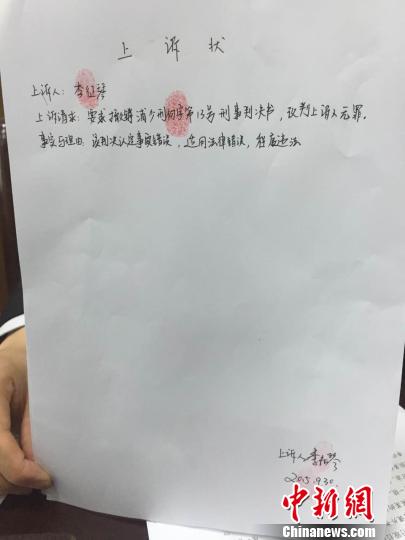 上诉状
上诉人：李征琴
上诉请求：要求撤销浦少刑初字第13号刑事判决书，改判上诉人无罪。
事实与理由：该判决认定事实错误，适用法律错误，程序违法
上诉人李征琴
2015.9.30.
中新网
Chinanews.com